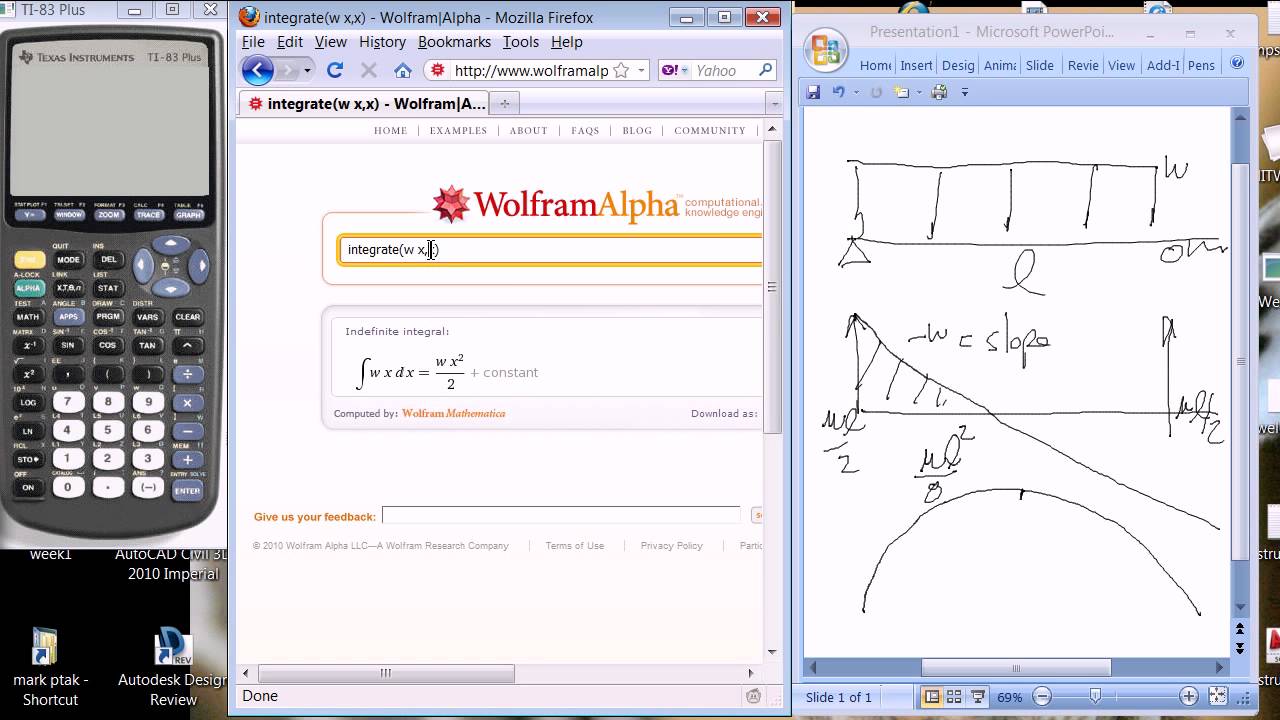 TI-83 Plus
TEXAS INSTRUMENTS TI-83 Plus
STAT PLOT F1 TBLSET F2 FORMAT F3 CALC F4 TABLE F5
Y= WINDOW ZOOM TRACE GRAPH
QUIT INS
2nd MODE DEL
A-LOCK LINK LIST
ALPHA X,T,θ,n STAT
TEST A ANGLE B DRAW C DISTR
MATH APPS PRGM VARS CLEAR
x-1 SIN COS TAN ^
x² , ( ) ÷
LOG 7 8 9 ×
LN 4 5 6 −
RCL
STO▸ 1 2 3 +
OFF CATALOG ANS ENTRY SOLVE
ON 0 . (−) ENTER
week1
AutoCAD Civil 3D
2010 Imperial
mark ptak -
Shortcut
Autodesk Design
Review
integrate(w x,x) - Wolfram|Alpha - Mozilla Firefox
File Edit View History Bookmarks Tools Help
http://www.wolframalp
Yahoo
integrate(w x,x) - Wolfram|A...
HOME | EXAMPLES | ABOUT | FAQS | BLOG | COMMUNITY |
WolframAlpha™ computational
knowledge engi
integrate(w x,x)
Indefinite integral:
∫w x dx = w x²/2 + constant
Computed by: Wolfram Mathematica Download as:
Give us your feedback:
© 2010 Wolfram Alpha LLC—A Wolfram Research Company | Terms of Use | Privacy Policy | Partic
Done
Presentation1 - Microsoft PowerPoi...
Home Insert Desig Anima Slide Revie View Add-I Pens
w
l
-w = slope
wl/2
wl/2
wl²/8
Slide 1 of 1 69%